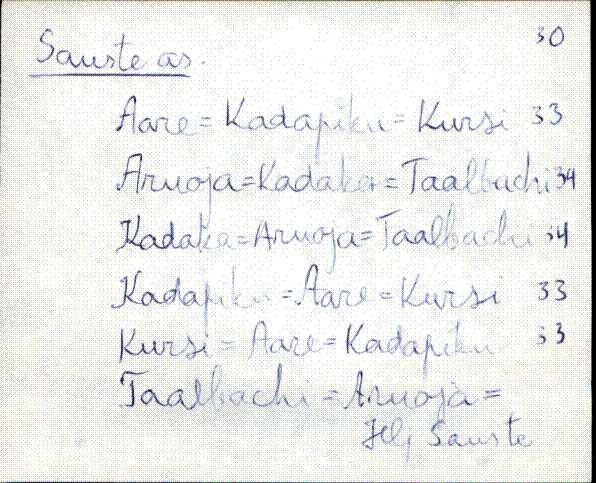 Sauste as. 30
Aare = Kadapiku = Kursi 33
Aruoja = Kadaka = Taalbachi 34
Kadaka = Aruoja = Taalbachi 34
Kadapiku = Aare = Kursi 33
Kursi = Aare = Kadapiku 33
Taalbachi = Aruoja =
Sauste